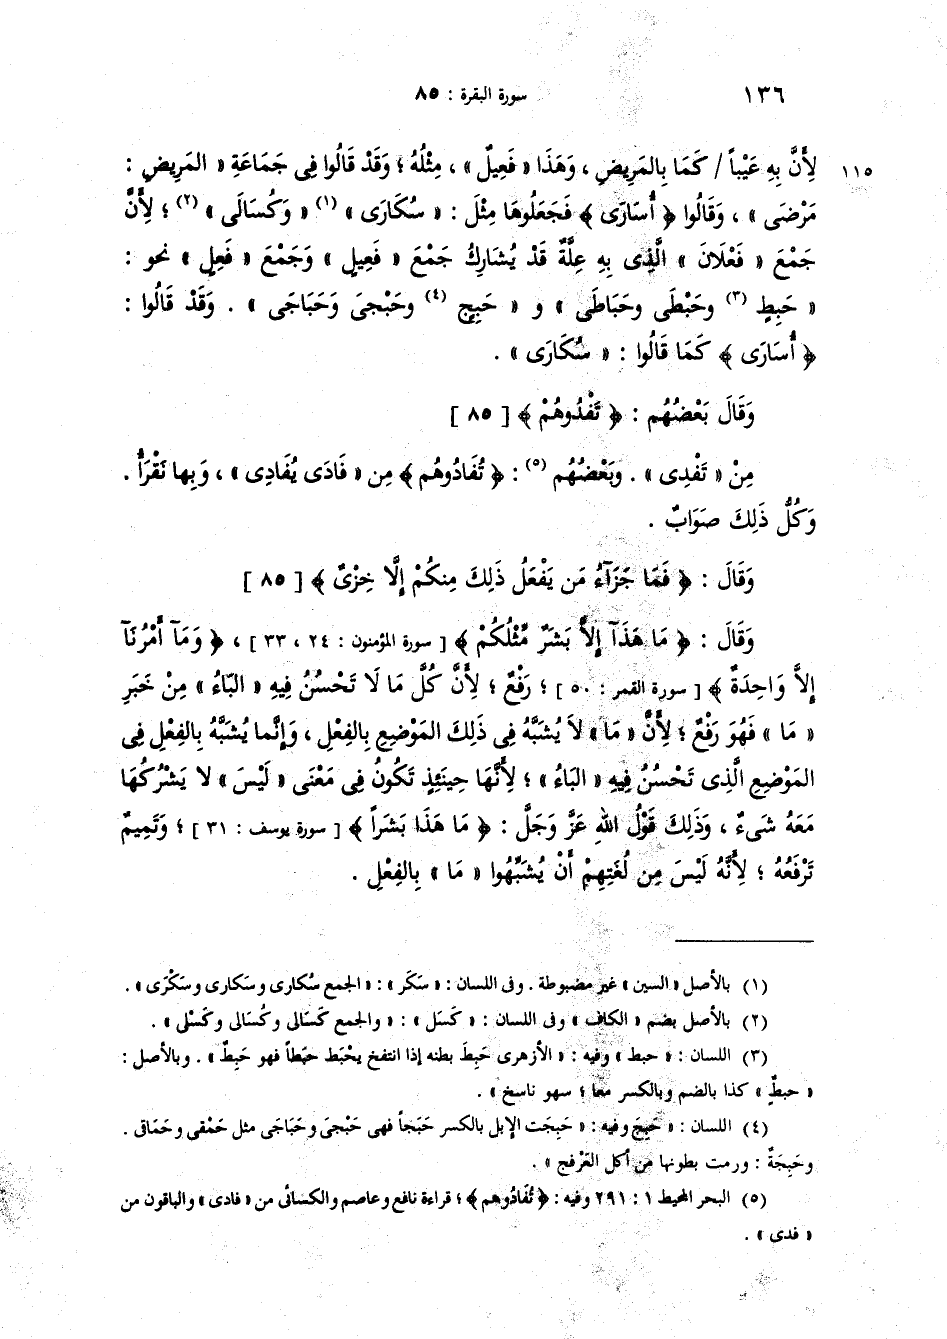 ١٣٦ سورة البقرة : ٨٥
١١٥ لِأَنَّ بِهِ عَيْباً / كَمَا بِالمَرِيضِ ، وَهَذَا « فَعِيلٌ » ، مِثْلُهُ ؛ وَقَدْ قَالُوا فِى جَمَاعَةِ « المَرِيضِ :
مَرْضَى » ، وَقَالُوا ﴿ أُسَارَى ﴾ فَجَعَلُوهَا مِثْلَ : « سُكَارَى » (١) « وَكُسَالَى » (٢) ؛ لِأَنَّ
جَمْعَ « فَعْلَانَ » الَّذِى بِهِ عِلَّةٌ قَدْ يُشَارِكُ جَمْعَ « فَعِيلٍ » وَجَمْعَ « فَعِلٍ » نحو :
« حَبِطٍ (٣) وحَبْطَى وحَبَاطَى » و « حَبِجٍ (٤) وحَبْجىَ وَحَبَاجَى » . وَقَدْ قَالُوا :
﴿ أُسَارَى ﴾ كَمَا قَالُوا : « سُكَارَى » .
وَقَالَ بَعْضُهُم : ﴿ تَفْدُوهُمْ ﴾ [ ٨٥ ]
مِنْ « تَفْدِى » . وبَعْضُهُم (٥) : ﴿ تُفَادُوهُم ﴾ مِن « فَادَى يُفَادِى » ، وَبِها نَقْرَأُ .
وَكُلُّ ذَلِكَ صَوَابٌ .
وَقَالَ : ﴿ فَمَا جَزَآءُ مَن يَفْعَلُ ذَلِكَ مِنكُمْ إِلَّا خِزْىٌ ﴾ [ ٨٥ ]
وَقَالَ : ﴿ مَا هَذَآ إِلاَّ بَشَرٌ مِّثْلُكُمْ ﴾ [ سورة المؤمنون : ٢٤ ، ٣٣ ] ، ﴿ وَمَآ أَمْرُنَآ
إِلاَّ وَاحِدَةٌ ﴾ [ سورة القمر : ٥٠ ] ؛ رَفْعٌ ؛ لِأَنَّ كُلَّ مَا لَا تَحْسُنُ فِيهِ « البَاءُ » مِنْ خَبَرِ
« مَا » فَهُوَ رَفْعٌ ؛ لِأَنَّ « مَا » لاَ يُشَبَّهُ فِى ذَلِكَ المَوْضِعِ بِالفِعْلِ ، وَإِنَّما يُشَبَّهُ بِالفِعْلِ فِى
المَوْضِعِ الَّذِى تَحْسُنُ فِيهِ « البَاءُ » ؛ لِأَنَّهَا حِينَئِذٍ تَكُونُ فِى مَعْنَى « لَيْسَ » لا يَشْرَكُهَا
مَعَهُ شَىءٌ ، وَذَلِكَ قَوْلُ اللهِ عَزَّ وَجَلَّ : ﴿ مَا هَذَا بَشَراً ﴾ [ سورة يوسف : ٣١ ] ؛ وَتَمِيمٌ
تَرْفَعُهُ ؛ لِأَنَّهُ لَيْسَ مِن لُغَتِهِمْ أَنْ يُشَبِّهُوا « مَا » بِالفِعْلِ .
(١) بالأصل « السين » غير مضبوطة . وفى اللسان : « سَكَر » : « الجمع سُكارى وسَكارى وسَكْرَى » .
(٢) بالأصل بضم « الكاف » وفى اللسان : « كَسَل » : « والجمع كَسَالى وكُسَالى وكَسْلى » .
(٣) اللسان : « حبط » وفيه : « الأزهرى حَبِطَ بطنه إذا انتفخ يحْبَط حَبَطاً فهو حَبِطٌ » . وبالأصل :
« حبطٍ » كذا بالضم وبالكسر معا ؛ سهو ناسخ » .
(٤) اللسان : « حَبِجَ وفيه : « حَبِجَت الإبل بالكسر حَبَجاً فهى حَبْجىَ وحَبَاجَى مثل حَمْقى وحَمَاق .
وحَبِجَةٌ : ورمت بطونها من أكل العَرْفج » .
(٥) البحر المحيط ١ : ٢٩١ وفيه : ﴿ تُفَادُوهم ﴾ ؛ قراءة نافع وعاصم والكسائى من « فادى » والباقون من
« فدى » .